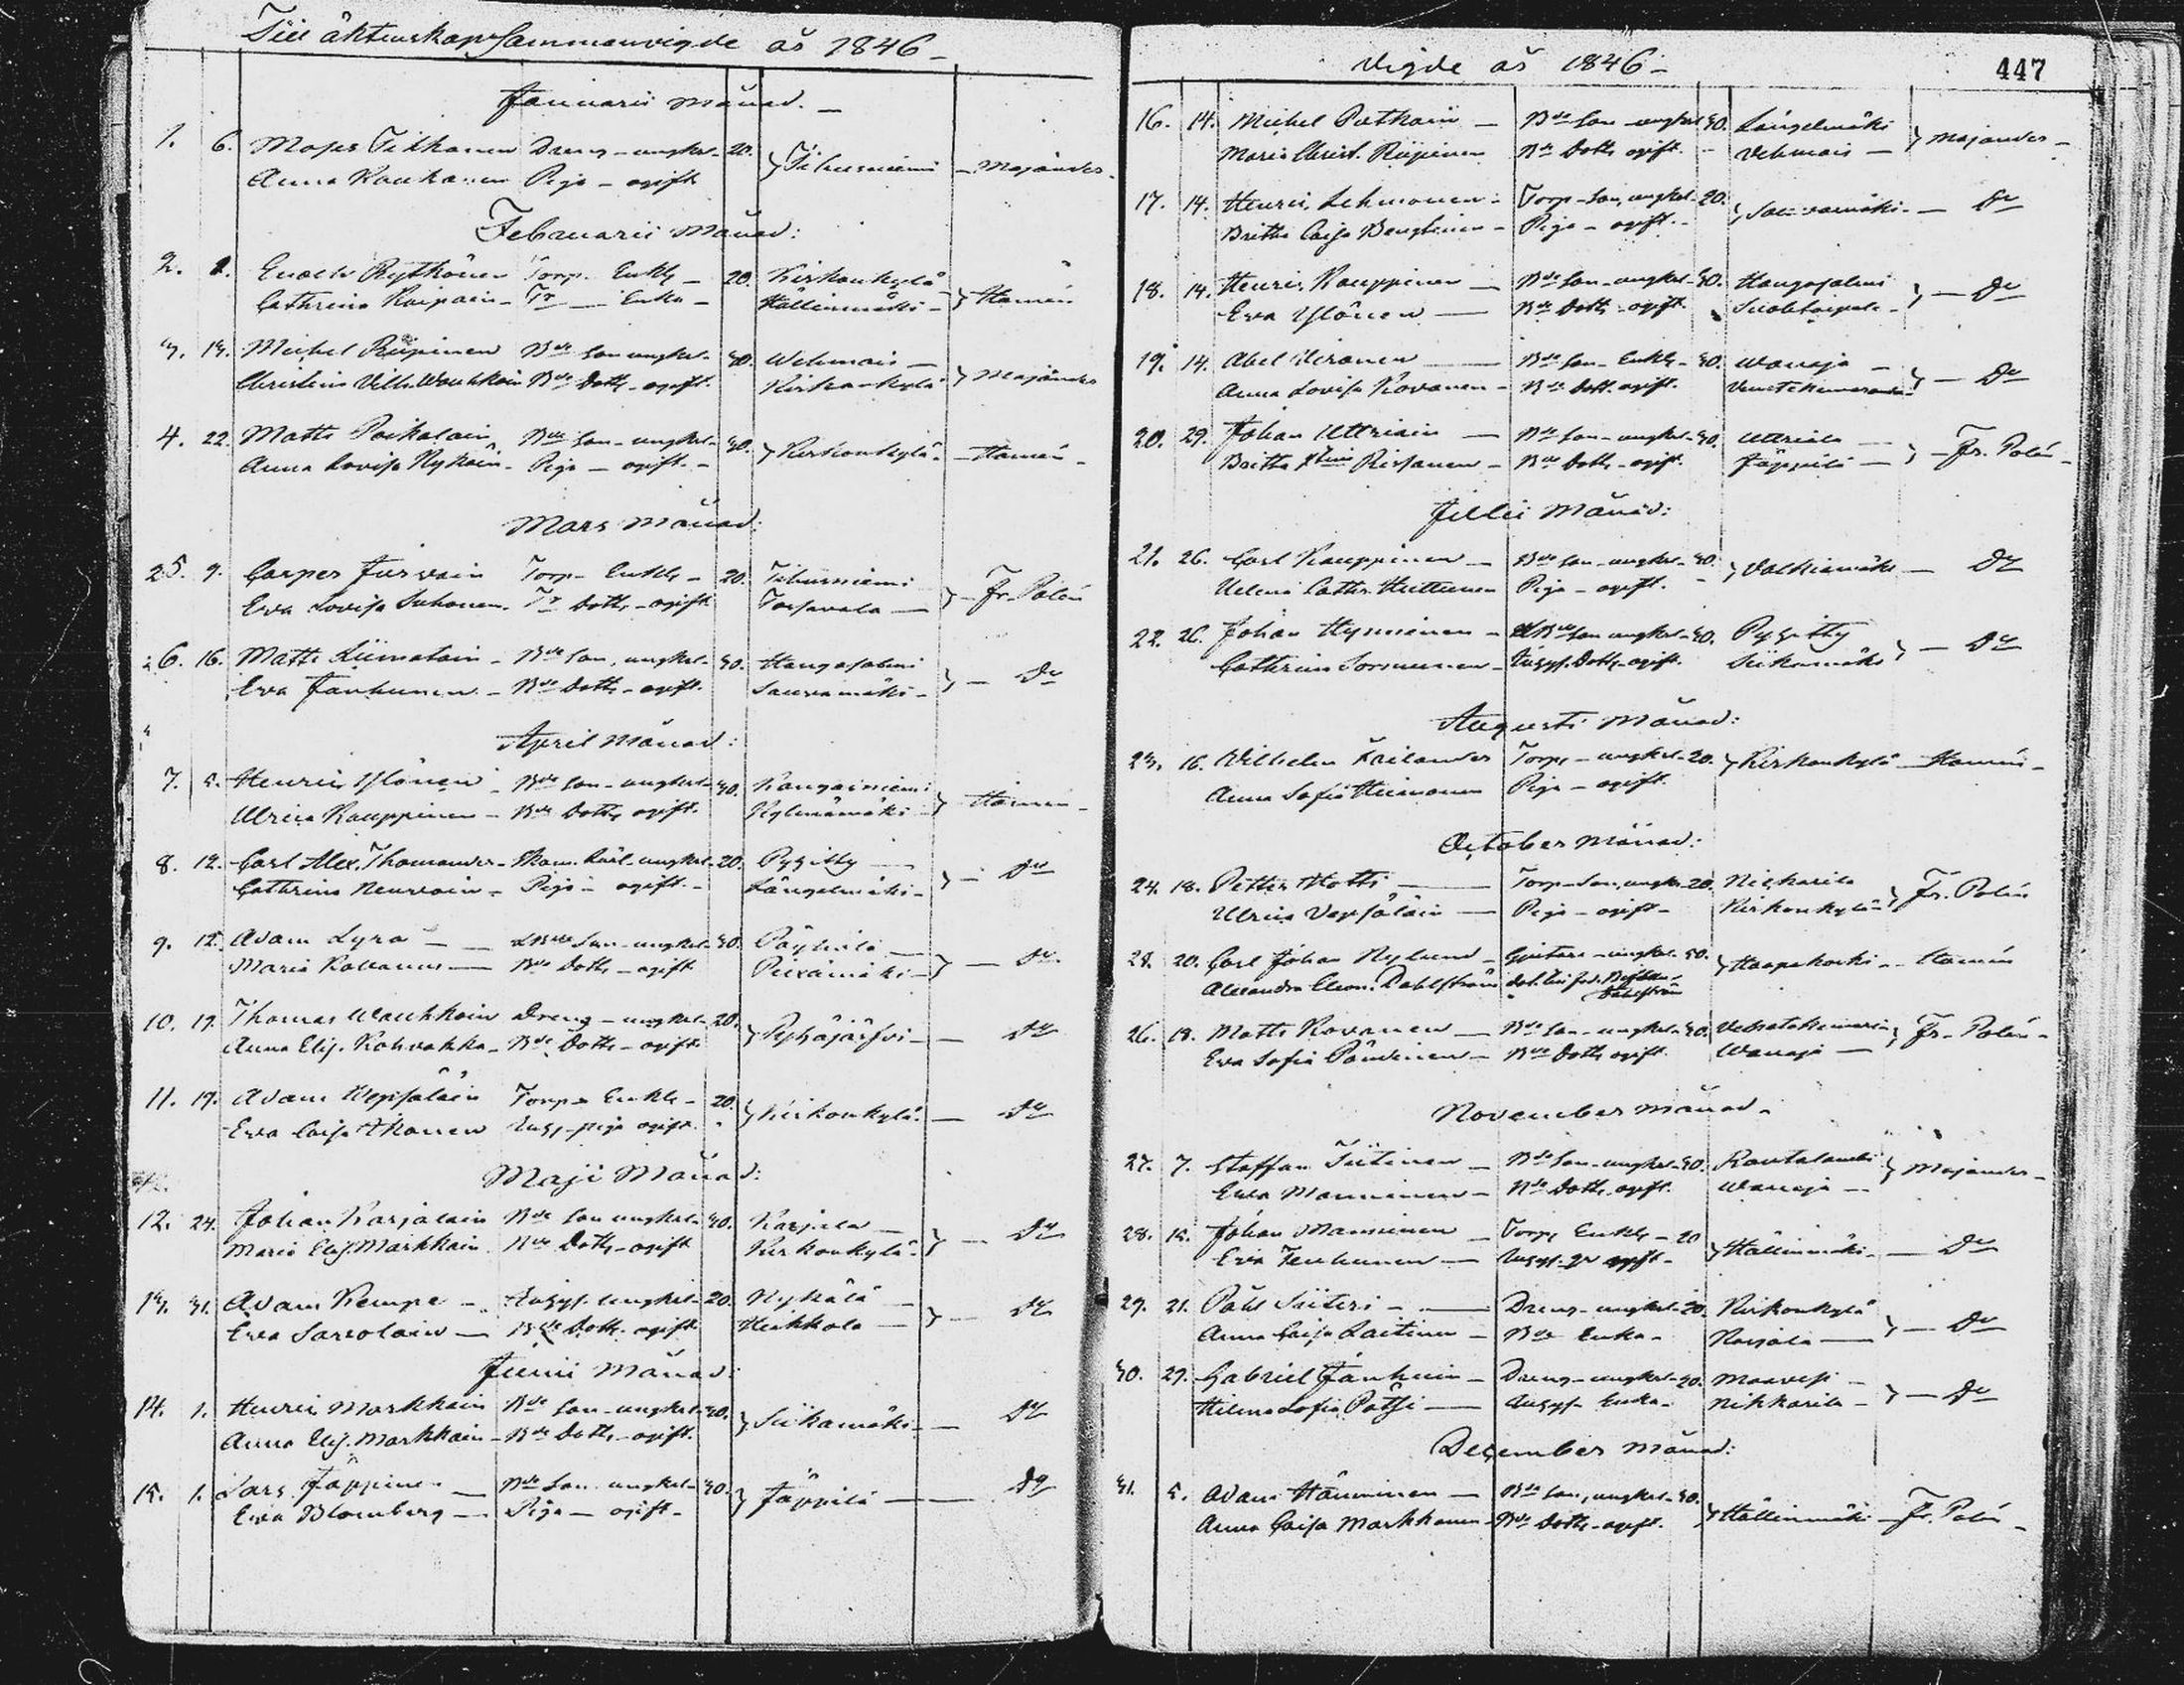 Till äktenskap Sammanvigde år 1846
Januarii Månad.
1. 6. Moses Tikkanen Dreng - ungkl. 20. } Tihusniemi - Majander
Anna Kauhanen Piga - ogift
Februarii Månad:
2. 1. Enoch Rytkönen Torp. Enkl. - 20. Kirkonkylä } Hamén
Cathrina Kaipain - Enka - Hällinmäki -
3. 13. Michel Riipinen Bde Son ungkl. 30. Wehmais } Majander
Christina Vilh. Wauhkoin Bde Dottr - ogift. Kirkonkylä
4. 22. Matts Poikolain Bde Son - ungkl. 30. } Kirkonkylä - Hamén -
Anna Lovisa Nykäin - Piga - ogift. -
Mars Månad:
5. 9. Casper Jurvain Torp - Enkl. - 20. Tihusniemi } - Fr. Polén
Ewa Lovisa Suhonen. Tr Dottr - ogift
6. 16. Matts Liimatain - Bde Son, ungkl. 30. Hangasalmi } - Do
Ewa Janhunen - Bde Dottr - ogift. Sauvamäki -
April Månad:
7. 5. Henric Ylönen - Bde Son - ungkl. 30. Kangainiemi } Hamén -
Ulrica Kauppinen - Bde Dottr ogift.
8. 12. Carl Alex. Thomander - ungkl. 20. Pyzitty } - Do
Cathrina Neuvoin - Piga - ogift. - Längelmäki -
9. 12. Adam Lyra - Son - ungkl. 30. } - Do
Maria Kovanen - Bde Dottr - ogift Piexämäki -
10. 19. Thomas Wauhkoin Dreng - ungkl. 20. } Pyhäjärfvi - Do
Anna Elis. Kohvakka - Bde Dottr - ogift
11. 19. Adam Wepsäläin Torp - Enkl. - 20. } Kirkonkylä - Do
Ewa Caisa Ikonen piga ogift.
Maji Månad:
12. 24. Johan Karjalain Bde Son ungkl. 30. Karjala } - Do
Maria Elis. Markkain Bde Dottr - ogift Kirkonkylä -
13. 31. Adam Kempe - ungkl. - 20. Nykälä } - Do
Ewa Savolain - Bde Dottr. ogift Heikkola -
Junii Månad:
14. 1. Henric Markkain Bde Son - ungkl. 30. } Siikamäki - Do
Anna Elis. Markkain - Bde Dottr - ogift.
15. 1. Lars Jäppinen Bde Son ungkl. 30. } Jäppilä - Do
Ewa Blomberg - Piga - ogift -
Vigde år 1846 -
447
16. 14. Michel Putkoin - Bde Son - ungkl. 30. Längelmäki } Majander -
Maria Christ. Riipinen Bde Dottr ogift. Vehmais -
17. 14. Henric Lehmonen - Torp - Son, ungkl. 20. } Sauvamäki - Do
Britha Caisa Piga - ogift. -
18. 14. Henric Kauppinen - Bde Son - ungkl. 30. Hangasalmi } - Do
Ewa Ylönen - Bde Dottr - ogift. Suolataipale -
19. 14. Abel - Bde Son - Enkl. - 30. Wanaja } - Do
Anna Lovisa Kovanen - Bde Dott. ogift.
20. 29. Johan Uttriain - Bde Son - ungkl. 30. Uttriala } - Fr. Polén -
Britha Rissanen - Bde Dottr - ogift. Jäppilä -
Julii Månad:
21. 26. Carl Kauppinen - Bde Son - ungkl. 30. } Valkiamäki - Do
Helena Cathr. Huttunen Piga - ogift.
22. 26. Johan Hynninen - Son ungkl. 30. Pyzitty } - Do
Cathrina Sormunen - Dottr - ogift. Siikamäki
Augusti Månad:
23. 16. Wilhelm Frilander Torp. - ungkl. 20. } Kirkonkylä - Hamén -
Anna Sofia Piga - ogift.
October Månad:
24. 18. Petter Hotti - Torp - Son, ungkl. 20. Nickarila } Fr. Polén
Ulrica Vepsäläin - Piga - ogift - Kirkonkylä
25. 20. Carl Johan Nylund - ungkl. 50. } Haapakoski - Hamén
Alexandra Eleon. Dahlström
Dahlström
26. 18. Matts Kovanen - Bde Son - ungkl. 30. } Fr. Polén -
Ewa Sofia Pänninen - Bde Dottr ogift. Wanaja -
November Månad -
27. 7. Staffan Tiitinen - Bde Son - ungkl. 30. Rautalambi } Majander -
Ewa Manninen - Bde Dottr - ogift. Wanaja -
28. 15. Johan Manninen - Torp. Enkl. - 20 } Hällinmäki - Do
Ewa Tenhunen - ogift -
29. 21. Påhl Siiteri - Dreng - ungkl. 20. Kirkonkylä } - Do
Anna Caisa Laitinen - Bde Enka - Karjala -
30. 29. Gabriel Janhuin - Dreng - ungkl. 20. Maavesi } - Do
Helena Sofia Pötsi - Enka - Nikkarila -
December Månad:
31. 5. Adam Hänninen - Bde Son, ungkl. 30. } Hällinmäki - Fr. Polén -
Anna Caisa Markkanen - Bde Dottr - ogift.